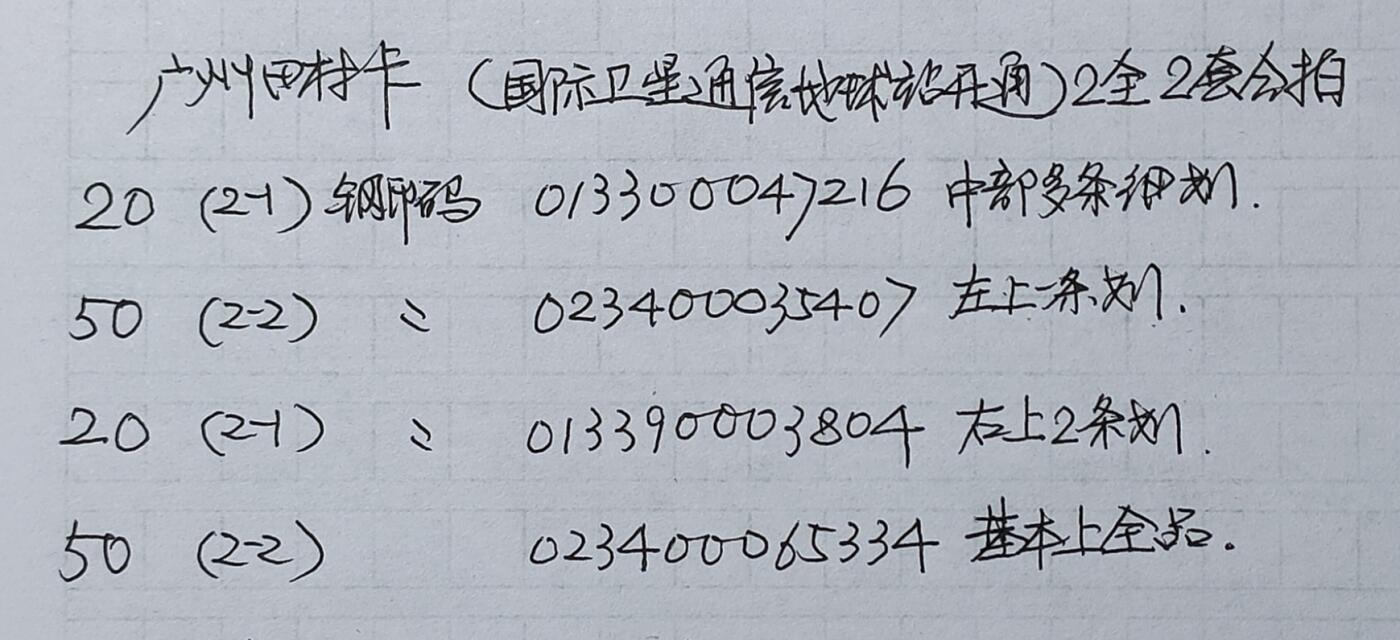 广州田村卡 (国际卫星通信地球站开通)2全2套合拍
20 (2-1) 钢印码 013300047216 中部多条细划.
50 (2-2) 〃 023400035407 左上一条划.
20 (2-1) 〃 013390003804 右上2条划.
50 (2-2) 023400065334 基本上全品.